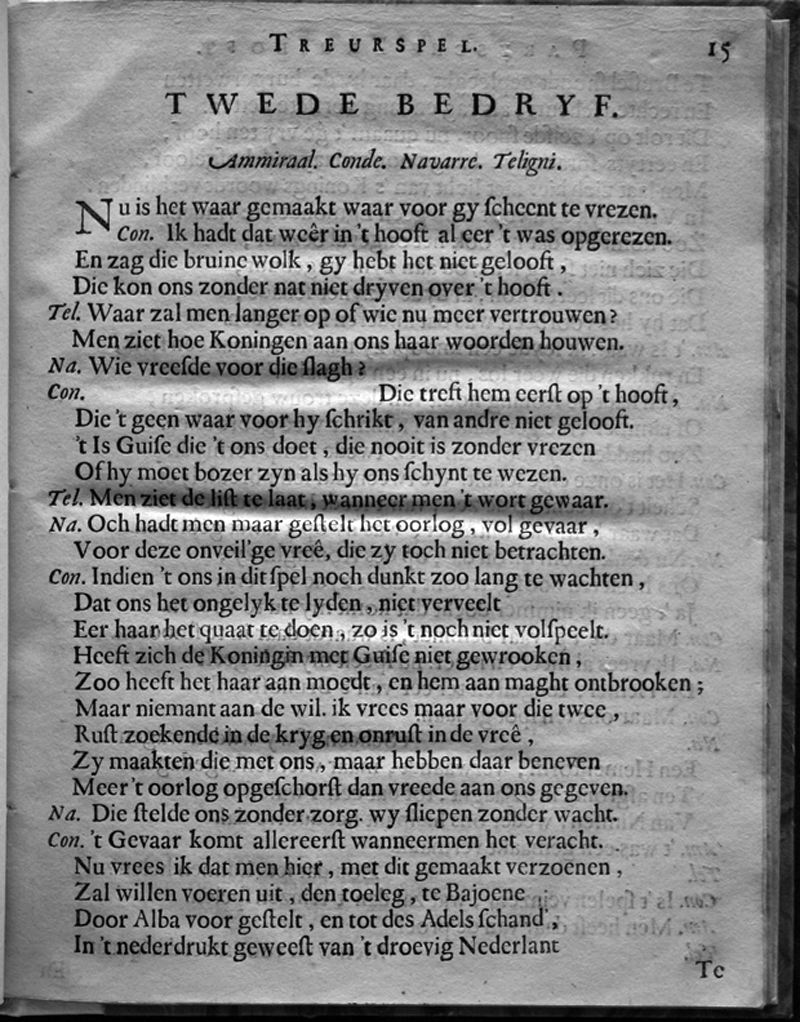 TREURSPEL. 15
TWEDE BEDRYF.
Ammiraal. Conde. Navarre. Teligni.
Nu is het waar gemaakt waar voor gy ſcheent te vrezen.
Con. Ik hadt dat weêr in 't hooft al eer 't was opgerezen.
En zag die bruine wolk, gy hebt het niet gelooft,
Die kon ons zonder nat niet dryven over 't hooft.
Tel. Waar zal men langer op of wie nu meer vertrouwen?
Men ziet hoe Koningen aan ons haar woorden houwen.
Na. Wie vreeſde voor die ſlagh?
Con. Die treft hem eerſt op 't hooft,
Die 't geen waar voor hy ſchrikt, van andre niet gelooft.
't Is Guiſe die 't ons doet, die nooit is zonder vrezen
Of hy moet bozer zyn als hy ons ſchynt te wezen.
Tel. Men ziet de liſt te laat, wanneer men 't wort gewaar.
Na. Och hadt men maar geſtelt het oorlog, vol gevaar,
Voor deze onveil'ge vreê, die zy toch niet betrachten.
Con. Indien 't ons in dit ſpel noch dunkt zoo lang te wachten,
Dat ons het ongelyk te lyden, niet verveelt
Eer haar het quaat te doen, zo is 't noch niet volſpeelt.
Heeft zich de Koningin met Guiſe niet gewrooken,
Zoo heeft het haar aan moedt, en hem aan maght ontbrooken;
Maar niemant aan de wil. ik vrees maar voor die twee,
Ruſt zoekende in de kryg en onruſt in de vreê,
Zy maakten die met ons, maar hebben daar beneven
Meer 't oorlog opgeſchorſt dan vreede aan ons gegeven.
Na. Die ſtelde ons zonder zorg. wy ſliepen zonder wacht.
Con. 't Gevaar komt allereerſt wanneermen het veracht.
Nu vrees ik dat men hier, met dit gemaakt verzoenen,
Zal willen voeren uit, den toeleg, te Bajoene
Door Alba voor geſtelt, en tot des Adels ſchand',
In 't nederdrukt geweeſt van 't droevig Nederlant
Te